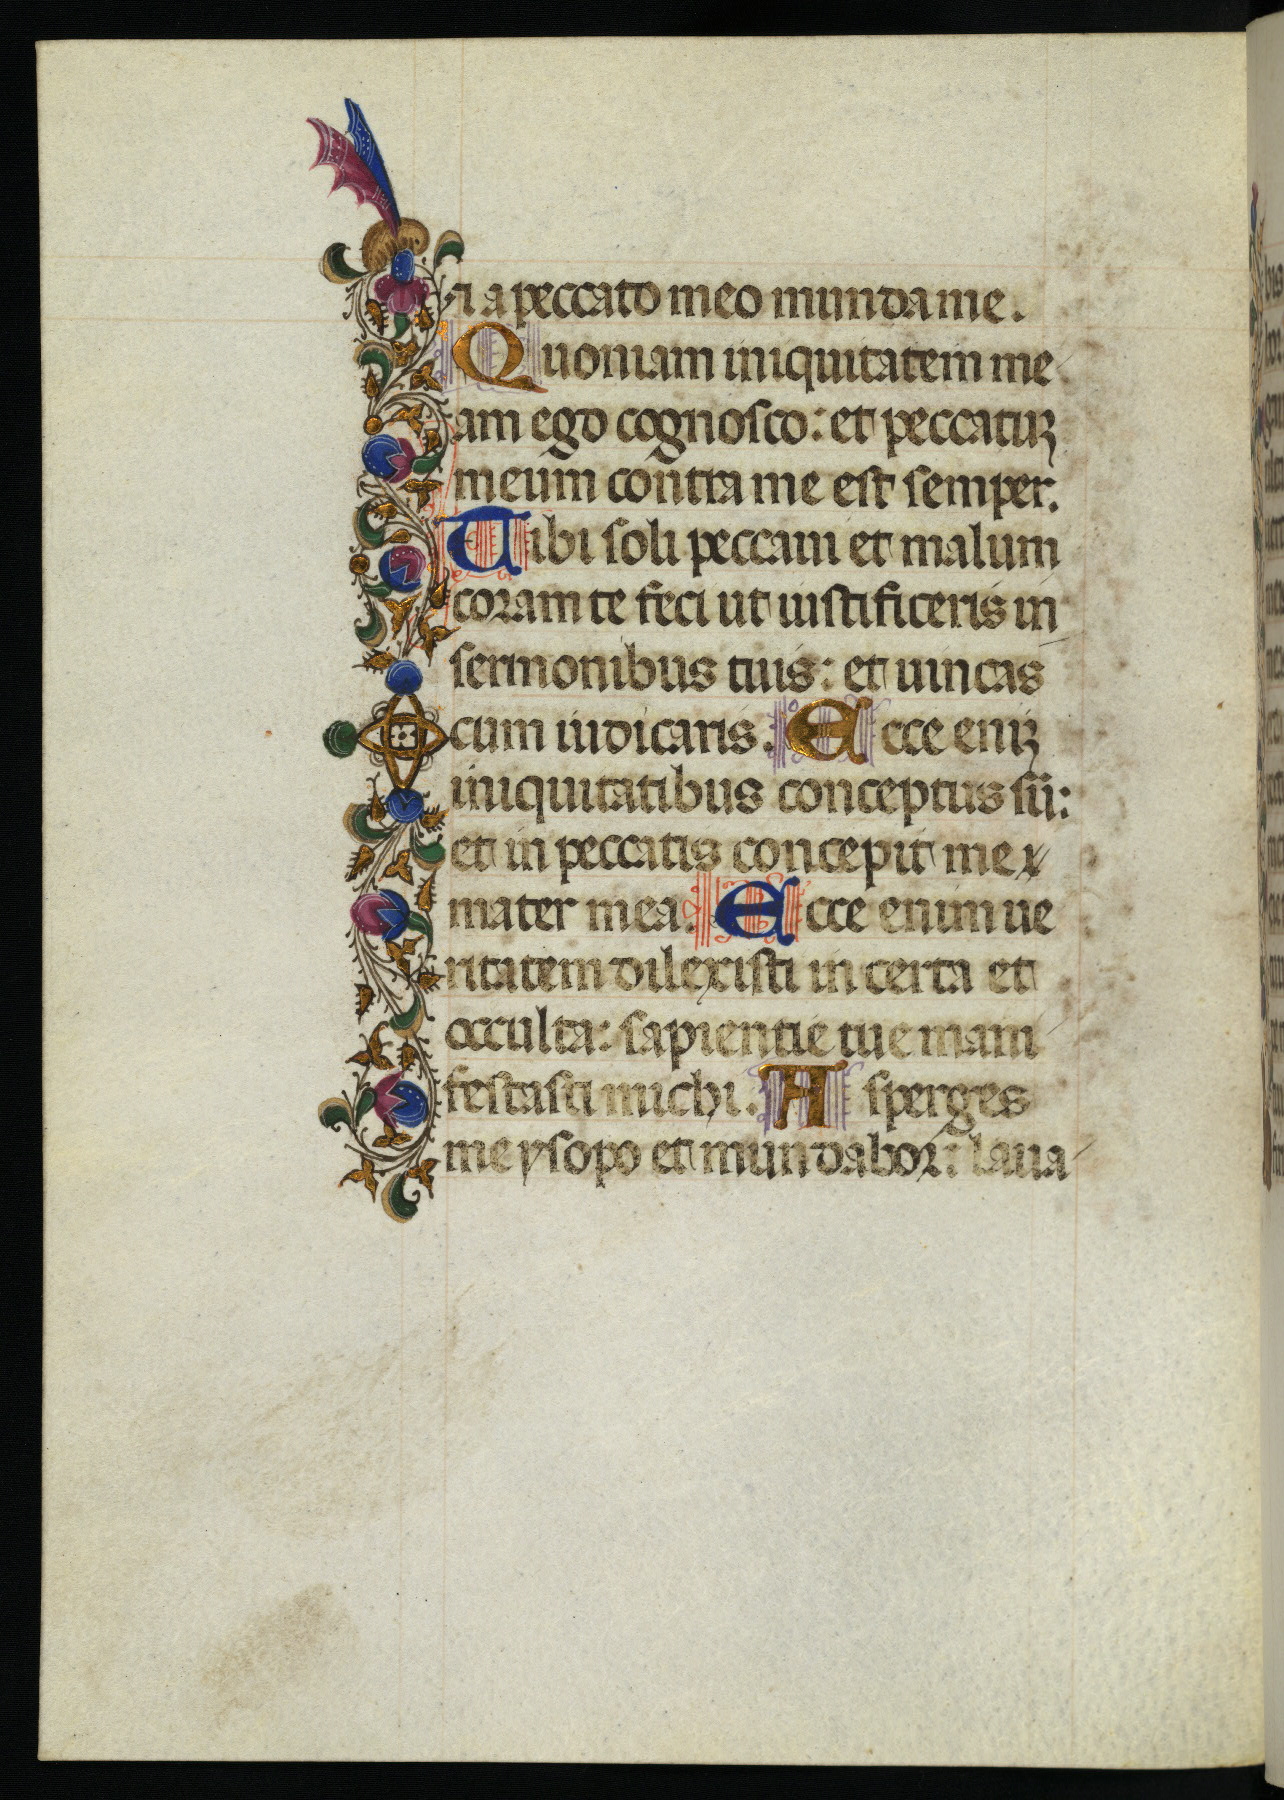 ti a peccato meo munda me.
Quoniam iniquitatem me
am ego cognosco: et peccatuꝫ
meum contra me est semper.
Tibi soli peccaui et malum
coram te feci ut iustificeris in
sermonibus tuis: et uincas
cum iudicaris. Ecce eniꝫ
iniquitatibus conceptus sū:
et in peccatis concepit me
mater mea. Ecce enim ue
ritatem dilexisti incerta et
occulta: sapientie tue mani
festasti michi. Asperges
me ysopo et mundabor: laua